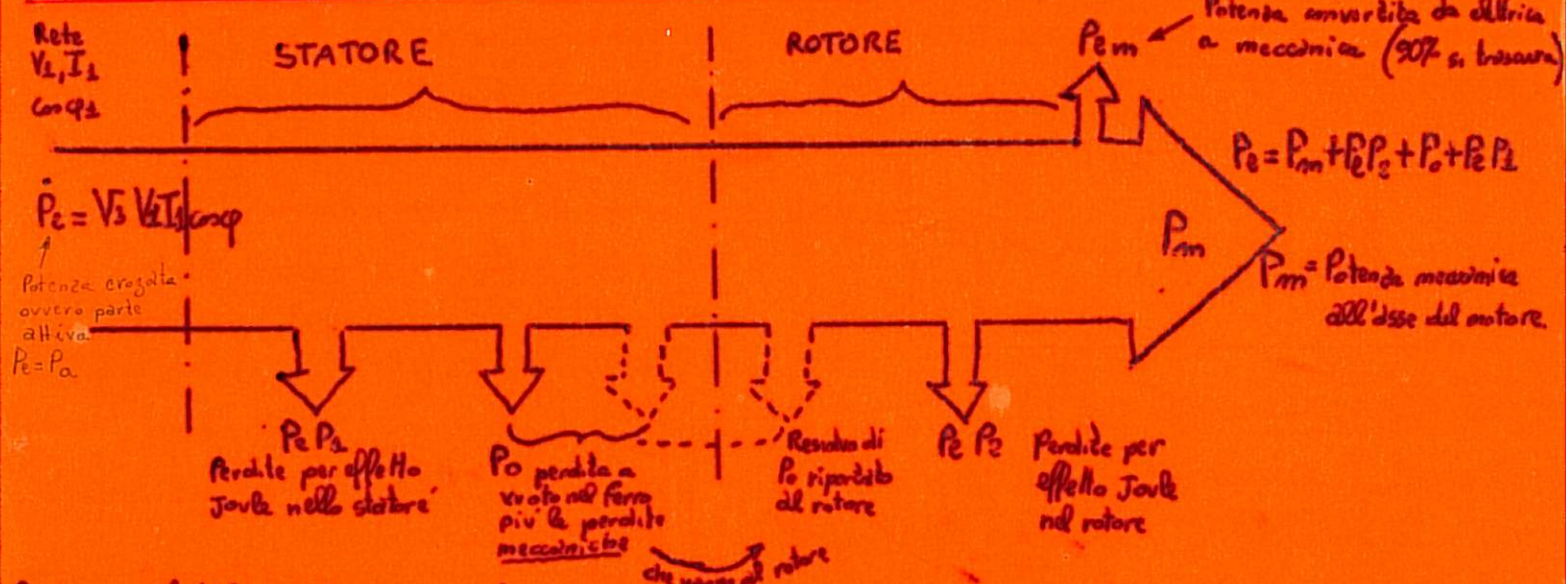 Rete
V1, I1
cosφ1
STATORE
ROTORE
Pem
Potenza convertita da elettrica
a meccanica (90% si trascura)
Pe = Pm + PeP2 + P0 + PeP1
Pe = √3 V1 I1 cosφ
Potenza erogata
ovvero parte
attiva
Pe = Pa
Pm
Pm = Potenza meccanica
all'asse del motore.
Pe P1
Perdite per effetto
Joule nello statore
P0 perdita a
vuoto nel ferro
più le perdite
meccaniche
che vanno al rotore
Residuo di
P0 riportato
al rotore
Pe P2 Perdite per
effetto Joule
nel rotore